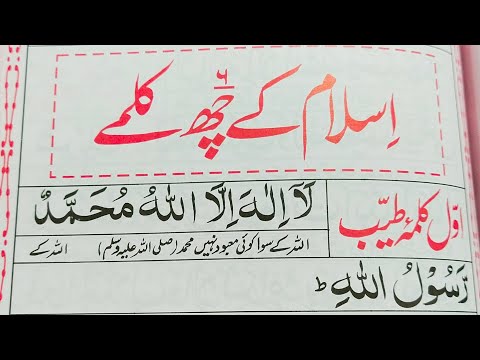 اِسلام کے ۶ چھ کلمے
اوّل کلمۂ طیّب
لَآ اِلٰهَ اِلَّا اللهُ مُحَمَّدٌ
اللہ کے سوا کوئی معبود نہیں محمد (صلی اللہ علیہ وسلم) اللہ کے
رَسُوْلُ اللهِ ؕ